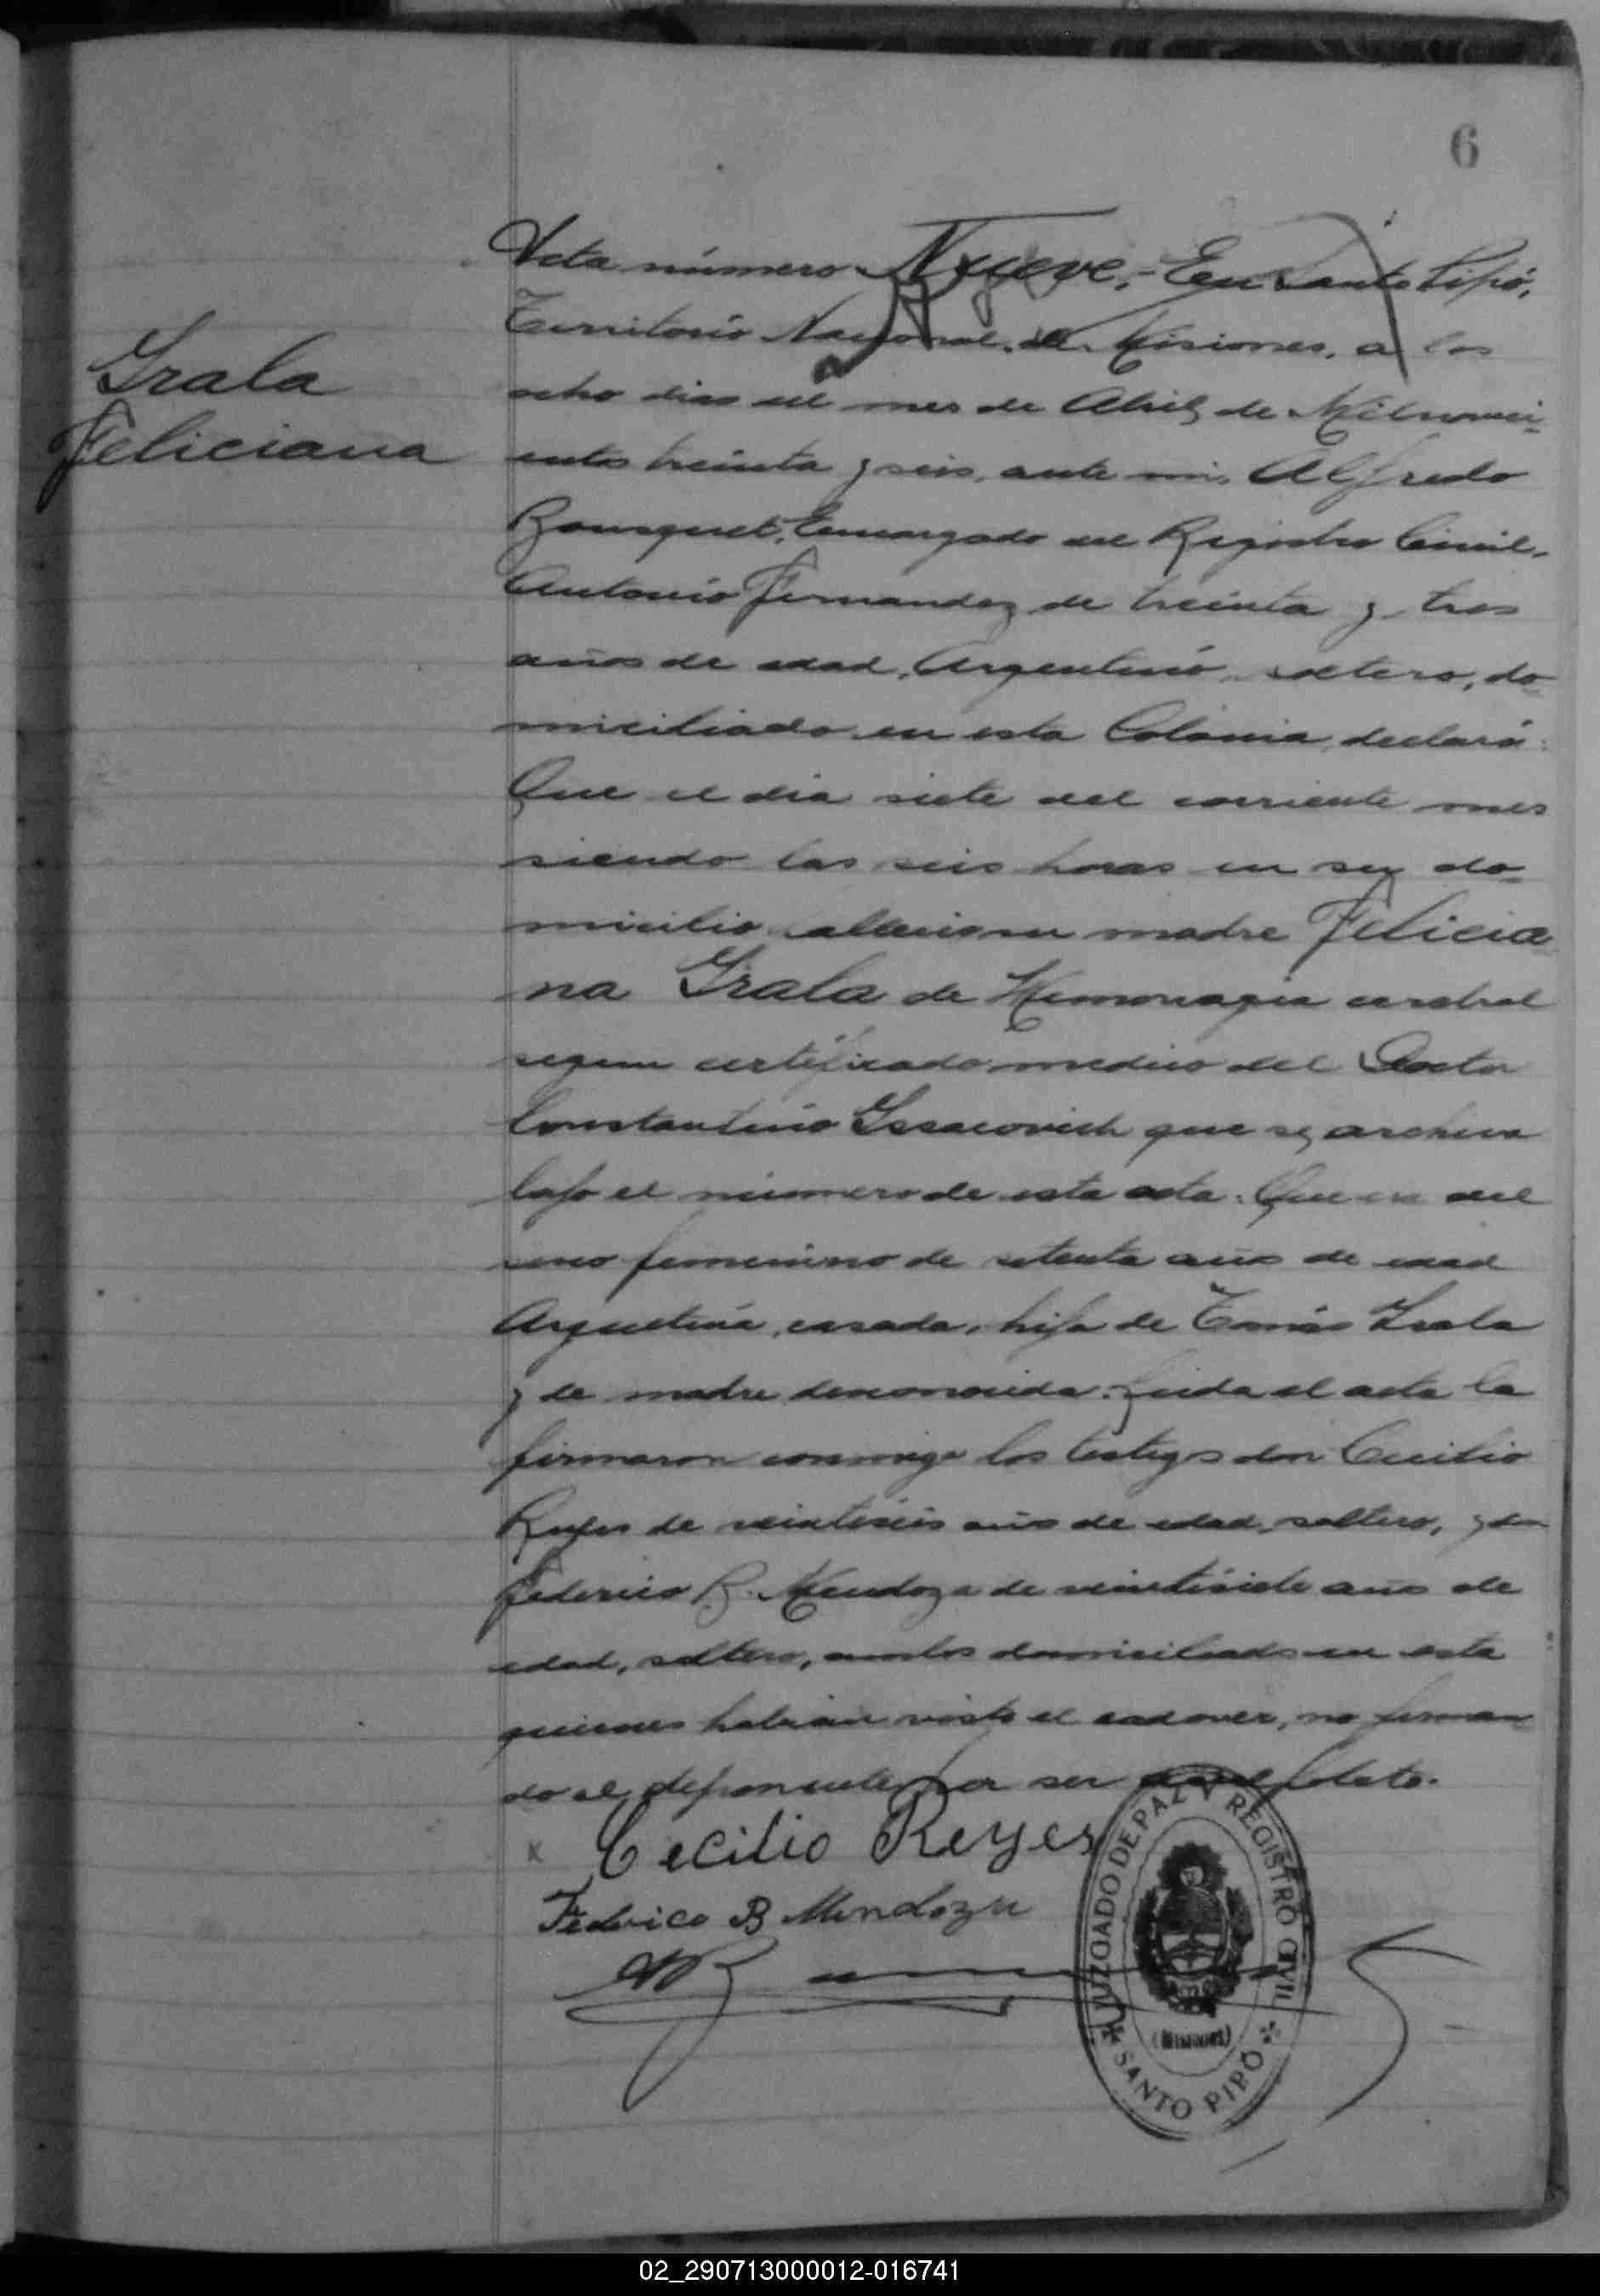 6
Acta número Nueve.- En Santo Pipó,
Territorio Nacional de Misiones, a los
ocho dias del mes de Abril de Milnoveci-
entos treinta y seis, ante mi, Alfredo
Bousquet, Encargado del Registro Civil,
Antonio Fernandez de treinta y tres
años de edad, Argentino, soltero, do-
miciliado en esta Colonia, declaró:
Que el dia siete del corriente mes
siendo las seis horas en su do-
micilio falleció su madre Felicia
na Irala de Hemorragia cerebral
segun certificado medico del Doctor
Constantino Issacovich que se archiva
bajo el número de esta acta. Que era del
sexo femenino de setenta años de edad
Argentina, casada, hija de Tomás Irala
y de madre desconocida. Leida el acta la
firmaron conmigo los testigos don Cecilio
Reyes de veintiseis años de edad, soltero, y don
Federico B. Mendoza de veintisiete años de
edad, soltero, ambos domiciliados en esta
quienes habian visto el cadaver, no firman
do el deponente por ser analfabeto.
Irala
Feliciana
x Cecilio Reyes
Federico B Mendoza
JUZGADO DE PAZ Y REGISTRO CIVIL
(MISIONES)
SANTO PIPÓ
02_290713000012-016741